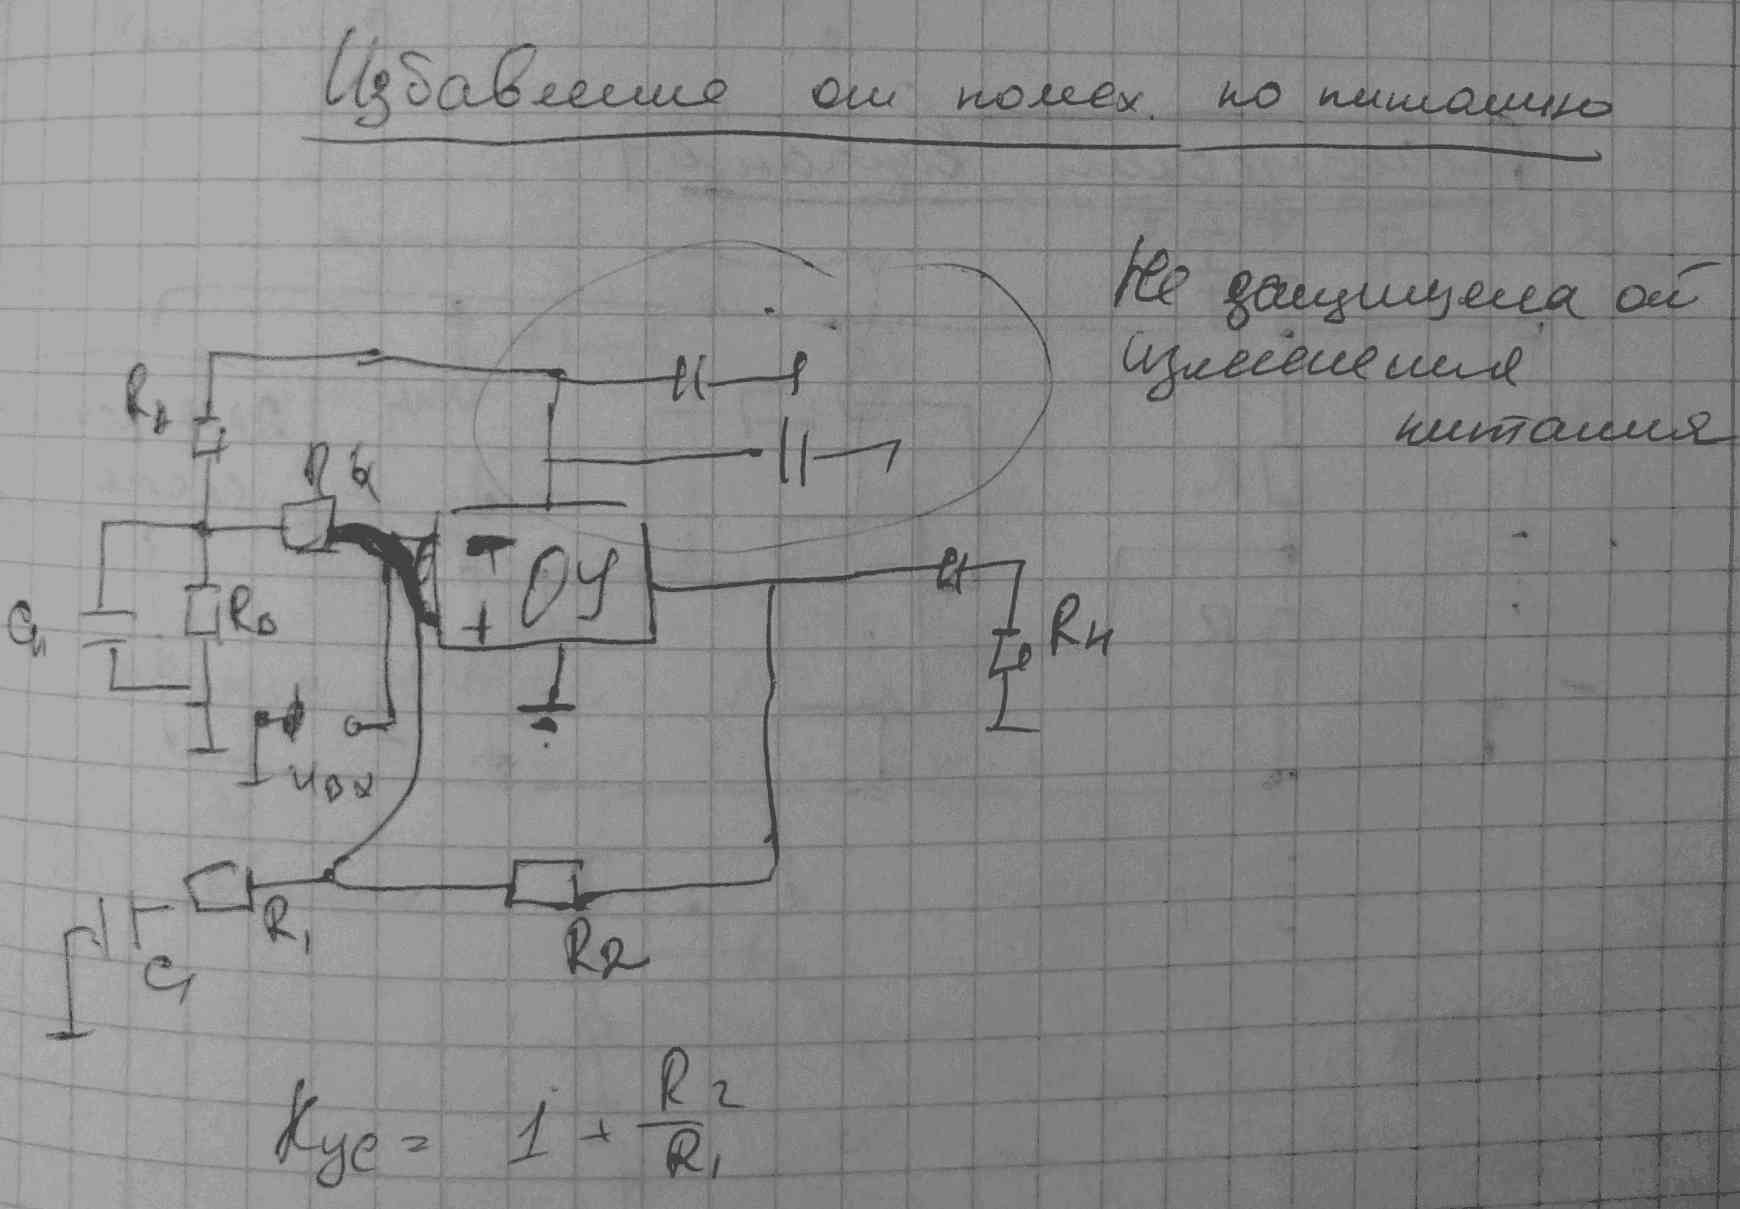 Избавление от помех по питанию
Не защищена от
изменения
питания
ОУ
+
Rн
Uвх
R1
R2
C1
Kус = 1 + R2/R1